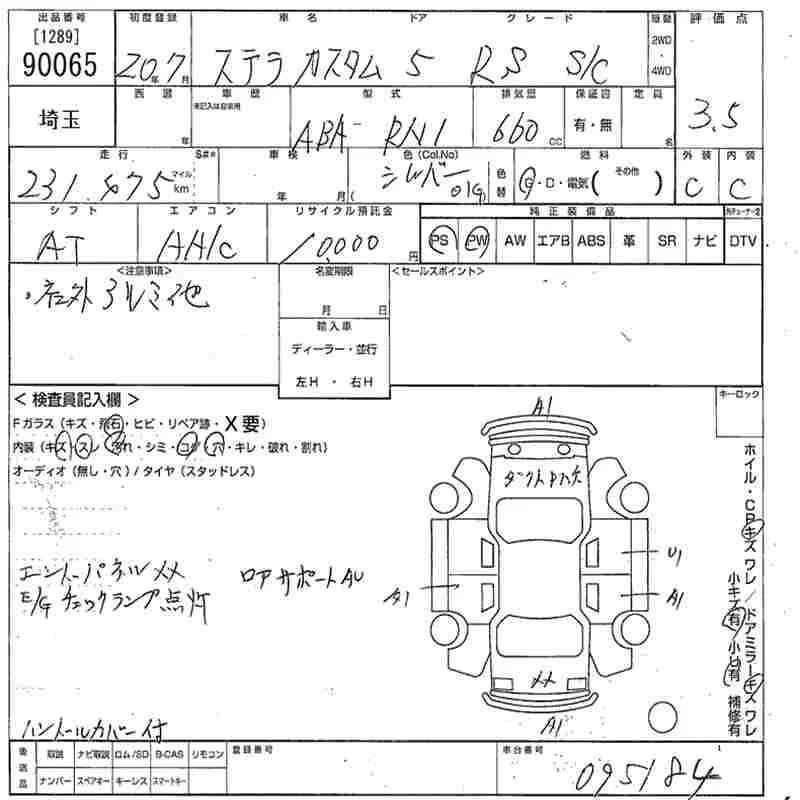 出品番号 初度登録 車名 ドア グレード 駆動 評価点
[1289]
90065 20年7月 ステラ カスタム 5 RS S/C 2WD・4WD 3.5
埼玉 西暦 年 車歴 未記入は自家用 型式 排気量 保証書 定員
ABA- RN1 660 CC 有・無 名
走行 S## 車検 色(Col.No) 燃料 外装 内装
231,475 マイル km 年 月( シルバー 色替 G・D・電気( その他 ) C C
シフト エアコン リサイクル預託金 純正装備品
AT AA/C 10,000円 PS PW AW エアB ABS 革 SR ナビ DTV
<注意事項> 名変期限 <セールスポイント>
社外アルミ他
月 日
輸入車
ディーラー・並行
左H ・ 右H
キーロック
< 検査員記入欄 >
Fガラス (キズ・飛石・ヒビ・リペア跡・X要)
内装 (キズ・スレ・汚れ・シミ・コゲ・穴・キレ・破れ・割れ)
オーディオ (無し・穴) / タイヤ (スタッドレス)
A1
U1
A1
A1
メメ
A1
エンドーパネルメメ ロアサポートAU
E/Gチェックランプ点灯
ハンドルカバー付
ホイル・CPキズワレ/ドアミラーキズワレ
小キズ有 小凹有 補修有
後送品 取説 ナビ取説 ロム/SD B-CAS リモコン 登録番号 車台番号
ナンバー スペアキー キーレス スマートキー 095184